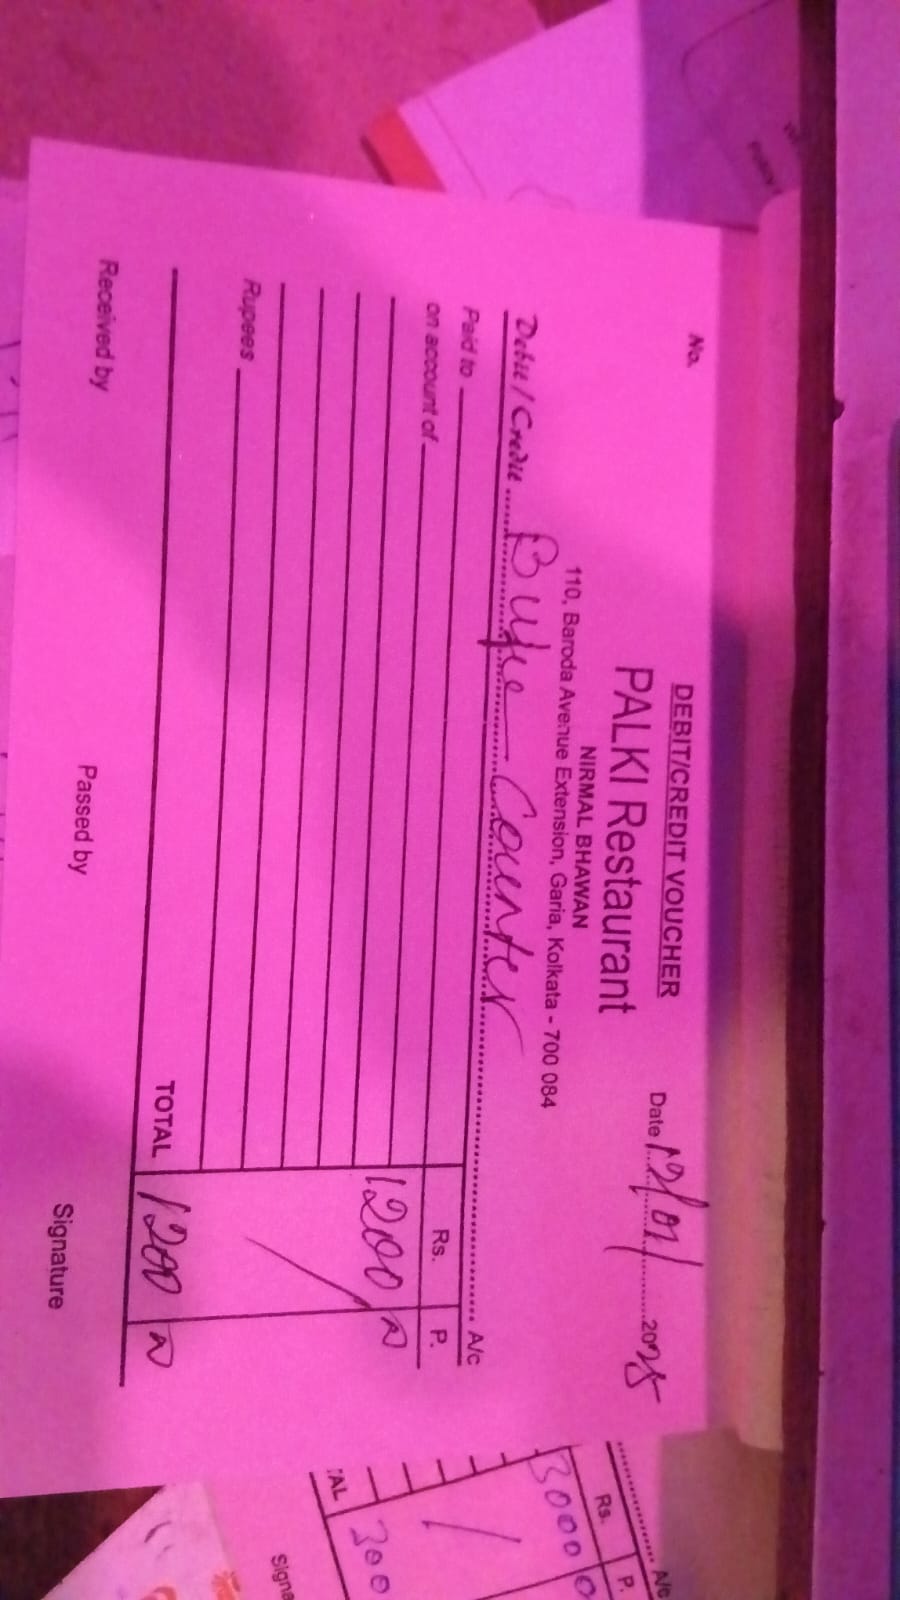 DEBIT/CREDIT VOUCHER
No.
PALKI Restaurant
Date 12/01/ 2025
NIRMAL BHAWAN
110, Baroda Avenue Extension, Garia, Kolkata - 700 084
Debit / Credit Bufe Counter A/c
Paid to Rs. P.
on account of 1200
Rupees
TOTAL 1200
Received by Passed by Signature
A/c
Rs. P.
3000 0
TAL 300
Signa